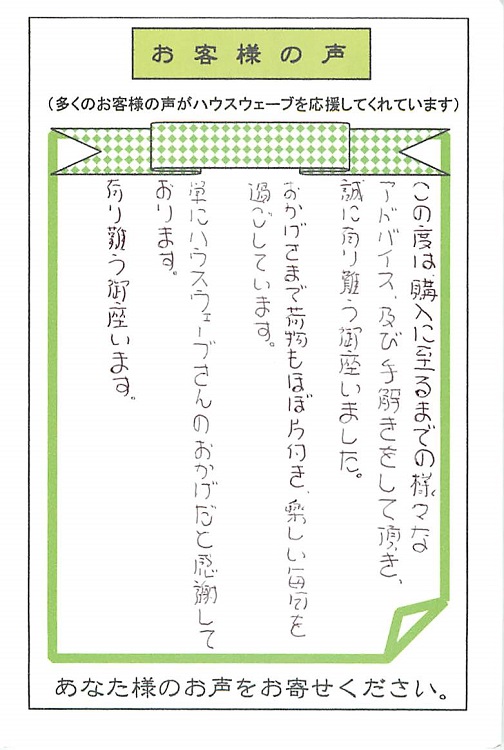 お客様の声
(多くのお客様の声がハウスウェーブを応援してくれています)
この度は、購入に至るまでの様々な
アドバイス、及び手解きをして頂き、
誠に有り難う御座いました。
おかげさまで荷物もほぼ片付き、楽しい毎日を
過ごしています。
単にハウスウェーブさんのおかげだと感謝して
おります。
有り難う御座います。
あなた様のお声をお寄せください。